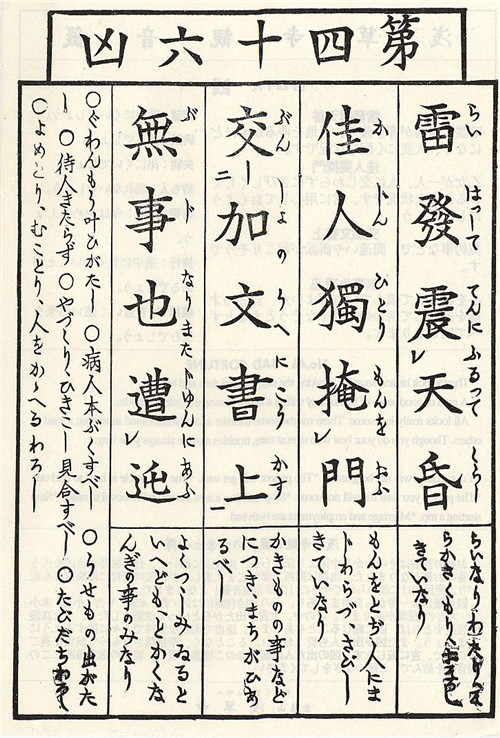 第四十六凶
雷發震天昏
らい はつして てんに ふるつて くらし
らいなりわたりそ
らかきくもり
きていなり
佳人獨掩門
かじん ひとり もんを お
もんをとぢ人にま
じわらづさびし
きていなり
交加文書上
ぶんしよのうへに
かきものの事など
につきまちがひあ
るべし
無事也遭迍
ぶじ なりまた ちゆんにあふ
よつつみゐると
いへどもとかくな
んぎの事のみなり
○ぐわんもう叶ひがたし ○病人本ぶくすべし ○うせもの出がた
し ○待人きたらず ○やづくりひきこし見合すべし ○たびだちわろし
○よめとりむことり人をかゝへるわろし